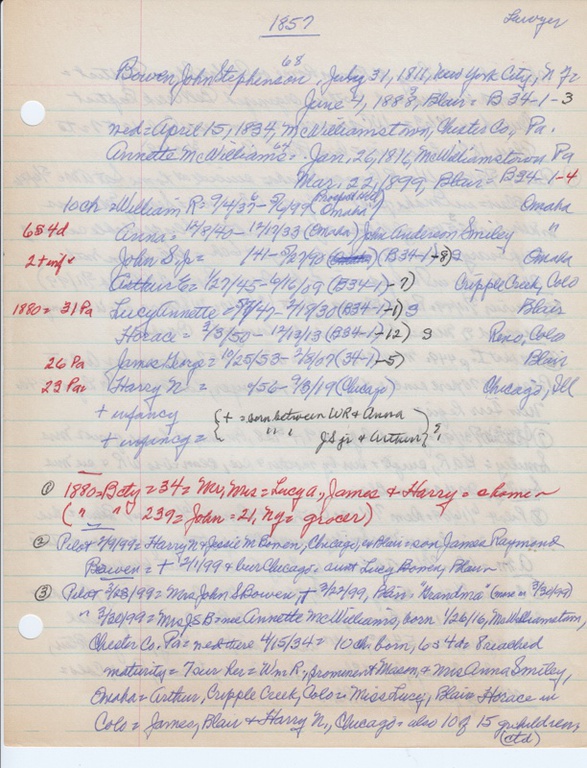 1857
Lawyer
68
Bowen, John Stephenson July 31, 1811, New York City, N.Y.
June 4, 1888, Blair = B 34-1-3
med = April 15, 1834, McWilliamstown, Chester Co., Pa.
Annette McWilliams = Jan. 26, 1816, McWilliamstown, Pa
Mar. 22, 1899, Blair = B34-1-4
10ch = William R = (Prospect Hill Omaha) Omaha
6s4d Anna = 12/8/40 - 12/17/33 (Omaha) John Anderson Smiley "
2+inf John S. Jr = 1841 - 5/27/40 (B34-1-8) Omaha
Arthur = 1/27/45 - 6/16/09 (B34-1-7) Cripple Creek, Colo
1880 = 31 Pa Lucy Annette (B34-1-1) Blair
Horace = 3/3/50 - 12/13/13 (B34-1-12) Colo
26 Pa James George = 10/25/53 - (34-1-5) Blair
23 Pa Harry N = 1856 - (Chicago) Chicago, Ill
+ infancy { + = born between WR & Anna
+ infancy = { " " " JS Jr & Arthur } ?
① 1880 = Bcty = 34 = Mr, Mrs = Lucy A., James & Harry = @home
( " " 239 = John = 21, NY = grocer)
② Pilot = Harry N & Jessie M Bowen, Chicago, ex Blair = son James Raymond
Bowen = + 12/1/99 & bur Chicago, aunt Lucy Bowen, Blair
③ Pilot 3/23/99 = Mrs John S Bowen + 3/22/99, Blair = "Grandma" (more in 3/30/99)
" 3/30/99 = Mrs JS B = nee Annette McWilliams, born 1/26/16, McWilliamstown,
Chester Co. Pa = 4/15/34 = 10ch born, 6s4d = 8 reached
maturity = 7 sur her = Wm R., prominent Mason, & Mrs Anna Smiley,
Omaha = Arthur, Cripple Creek, Colo = Miss Lucy, Blair = Horace in
Colo = James, Blair & Harry N., Chicago = also 10 of 15 gchildren,
(ctd)